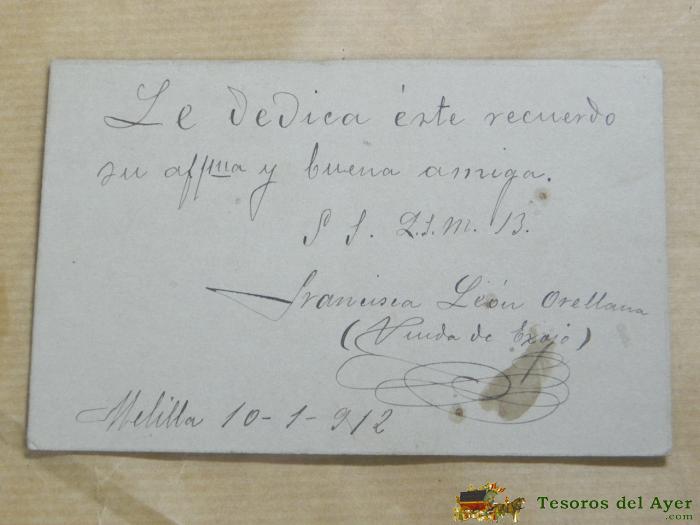 Le dedica éste recuerdo
su affma y buena amiga.
S S. Q.S.M.B.
Francisca León Orellana
(Viuda de Exojo)
Melilla 10-1-912
Tesoros del Ayer
.com